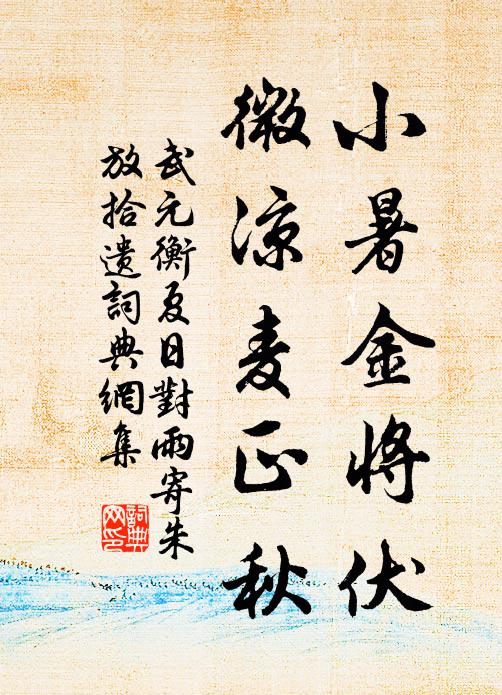 小暑金将伏
微凉麦正秋
武元衡夏日對雨寄朱
放拾遺詞典網集
詞典
网印